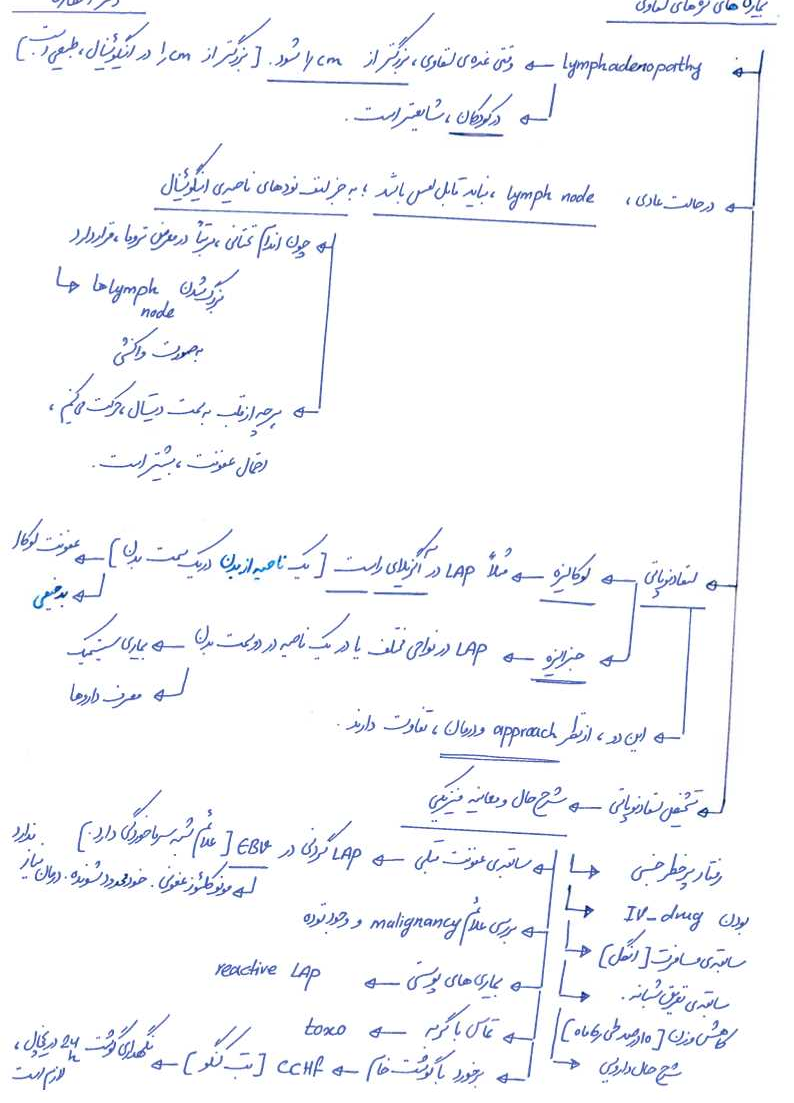 بیماری های نودهای لنفاوی
lymphadenopathy ← وقتی غده‌ی لنفاوی، بزرگتر از 1 cm شود. [بزرگتر از 1 cm در اینگوئینال، طبیعی است.]
در کودکان، شایعتر است.
در حالت عادی، lymph node، نباید قابل لمس باشد؛ به جز لنف نودهای ناحیه‌ی اینگوئینال
چون اندام تحتانی، مرتباً در معرض تروما، قرار دارد
بزرگ شدن lymph node ها
به صورت واکنشی
هرچه از قلب به سمت دیستال، حرکت می‌کنیم،
احتمال عفونت، بیشتر است.
لنفادنوپاتی ← لوکالیزه ← مثلاً LAP در آگزیلای راست [یک ناحیه از بدن در یک سمت بدن] ← عفونت لوکال
بدخیمی
جنرالیزه ← LAP در نواحی مختلف یا در یک ناحیه در دو سمت بدن ← بیماری سیستمیک
مصرف داروها
این دو، از نظر approach و درمان، تفاوت دارند.
تشخیص لنفادنوپاتی ← شرح حال و معاینه فیزیکی
سابقه‌ی عفونت قبلی ← LAP گردنی در EBV [علائم شبه سرماخوردگی دارد.]
مونونوکلئوز عفونی. خود محدود شونده. درمان نیاز ندارد
بررسی علائم malignancy و وجود توده
بیماری های پوستی ← reactive LAP
تماس با گربه ← toxo
برخورد با گوشت خام ← CCHF [تب کنگو] ← نگهداری گوشت 24 h در یخچال، لازم است
رفتار پرخطر جنسی
IV-drug بودن
سابقه‌ی مسافرت [انگل]
سابقه‌ی تعریق شبانه.
کاهش وزن [10 درصد طی 6 ماه]
شرح حال دارویی